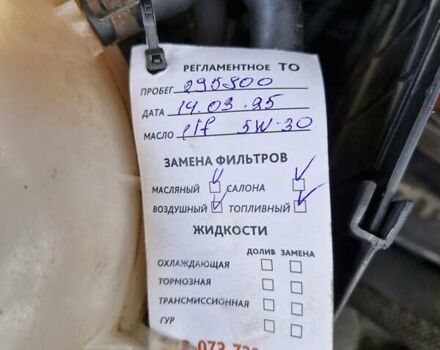 РЕГЛАМЕНТНОЕ ТО
ПРОБЕГ 295800
ДАТА 14.03.25
МАСЛО elf 5W-30
ЗАМЕНА ФИЛЬТРОВ
МАСЛЯНЫЙ САЛОНА
ВОЗДУШНЫЙ ТОПЛИВНЫЙ
ЖИДКОСТИ
ДОЛИВ ЗАМЕНА
ОХЛАЖДАЮЩАЯ
ТОРМОЗНАЯ
ТРАНСМИССИОННАЯ
ГУР